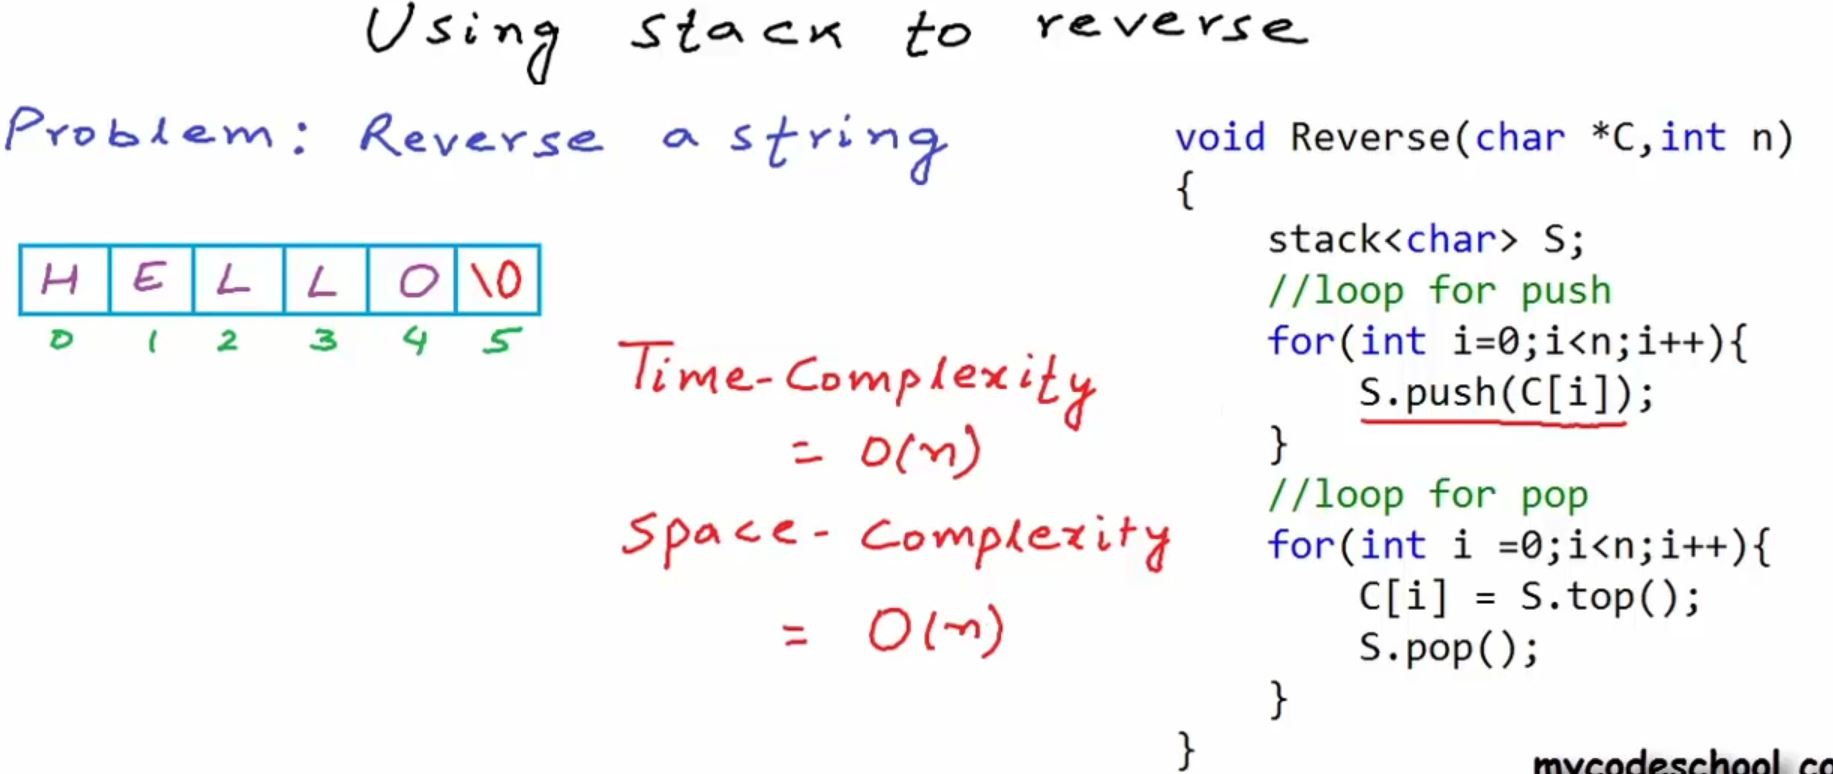 Using stack to reverse
Problem: Reverse a string
H E L L O \0
0 1 2 3 4 5
Time-Complexity
= O(n)
Space-Complexity
= O(n)
void Reverse(char *C,int n)
{
stack<char> S;
//loop for push
for(int i=0;i<n;i++){
S.push(C[i]);
}
//loop for pop
for(int i =0;i<n;i++){
C[i] = S.top();
S.pop();
}
}